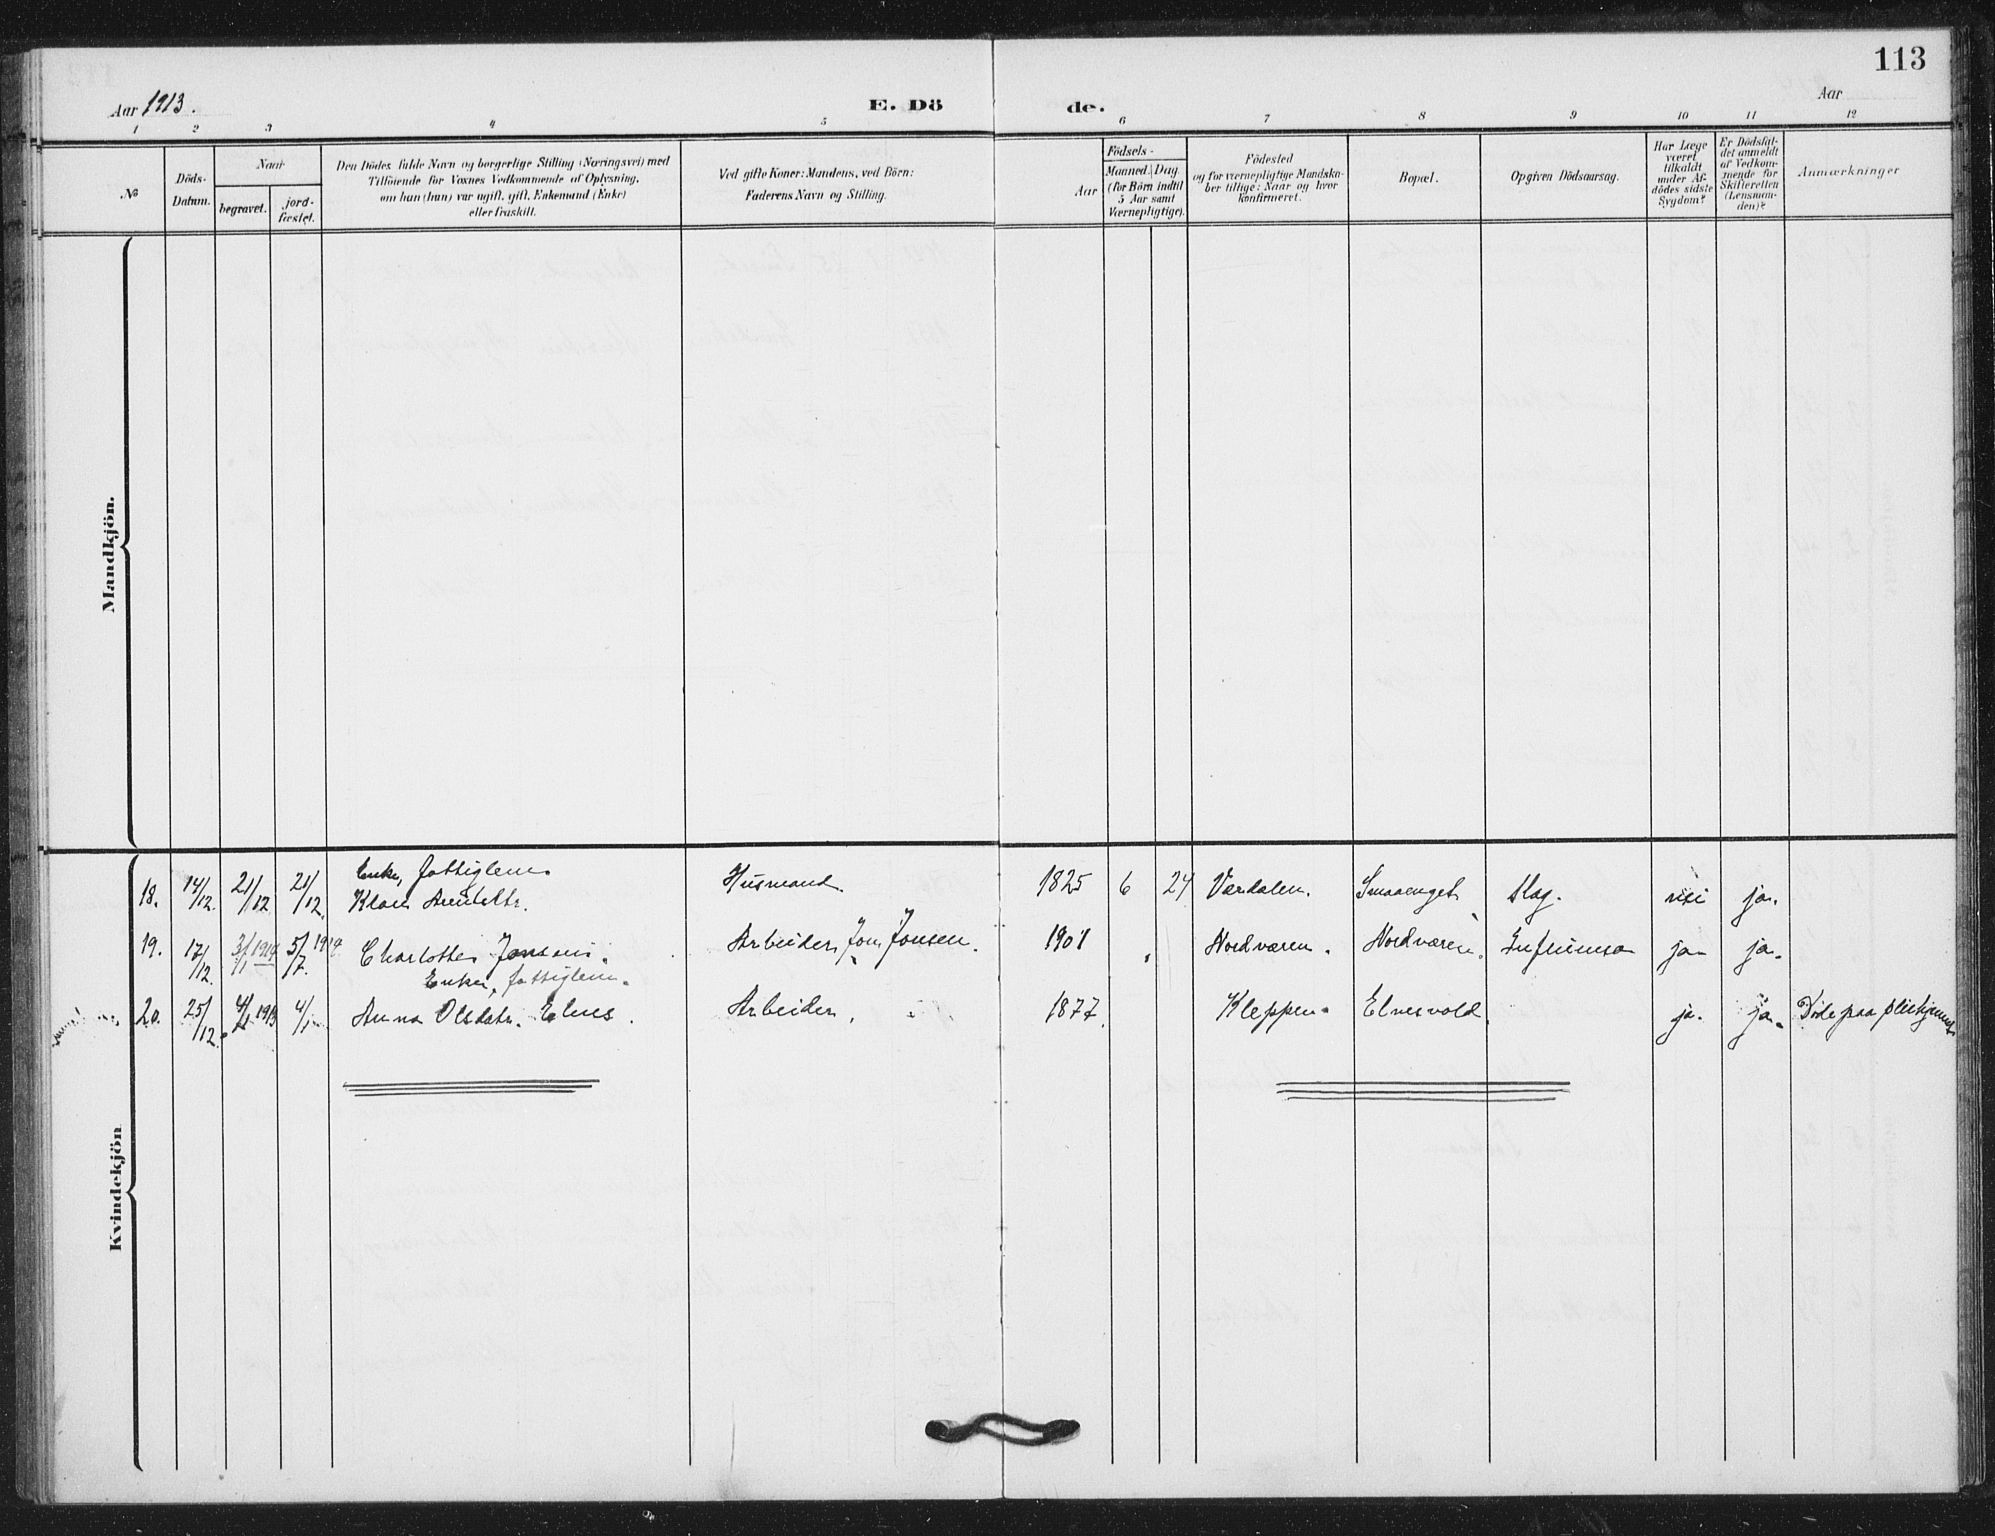 113
Aar 1913.
E. Dö
de.
Aar
1 2 3 4 5 6 7 8 9 10 11 12
No
Döds-
Datum.
Naar
begravet.
jord-
fæstet.
Den Dödes fulde Navn og borgerlige Stilling (Næringsvei) med
Tilföiende for Voxnes Vedkommende af Oplysning,
om han (hun) var ugift, gift, Enkemand (Enke)
eller fraskilt.
Ved gifte Koner: Mandens, ved Börn:
Faderens Navn og Stilling.
Födsels-
Aar
Maaned. Dag.
(for Börn indtil
5 Aar samt
Værnepligtige).
Födested
og for værnepligtige Mandska-
ber tillige: Naar og hvor
konfirmeret.
Bopæl.
Opgiven Dödsaarsag.
Har Læge
været
tilkaldt
under Af-
dödes sidste
Sygdom?
Er Dödsfal-
det anmeldt
af Vedkom-
mende for
Skifteretten
(Lensman-
den)?
Anmærkninger
Mandkjön.
Enke, fattiglem
18. 14/12. 21/12 21/12. Husmand. 1825 6 24 Værdalen. Smaaenget Slag. nei ja.
19. 17/12. 3/1 1914 5/7. 1914. Charlotte Arbeider Jon Jonsen. 1901 Nordværen. Nordværen. ja ja.
Enke, fattiglem.
20. 25/12. 4/1 Anna Olsdatr. Elnes. Arbeider. 1877. Kleppen Elnesvold. ja. ja. Döde paa
Kvindekjön